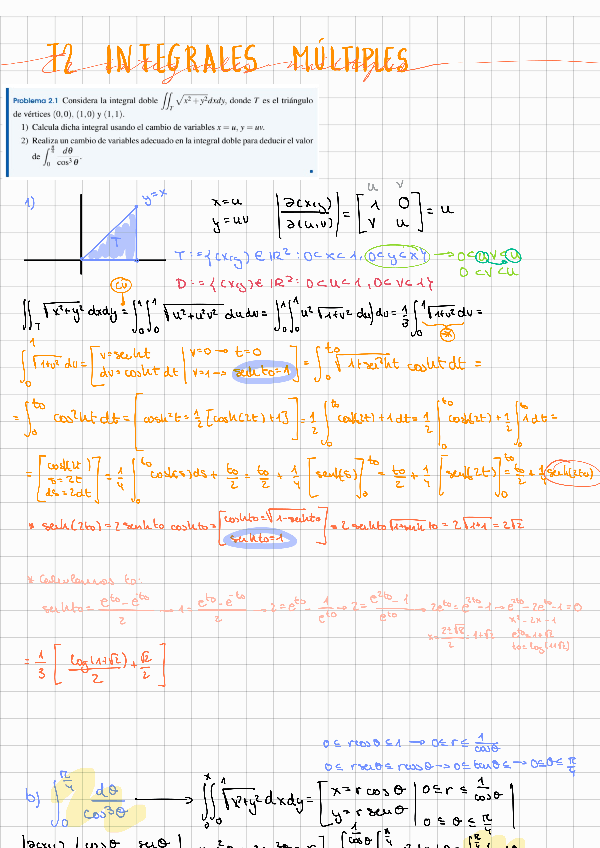 T2 INTEGRALES MÚLTIPLES
Problema 2.1 Considera la integral doble ∬_T √(x²+y²) dxdy, donde T es el triángulo
de vértices (0,0), (1,0) y (1,1).
1) Calcula dicha integral usando el cambio de variables x = u, y = uv.
2) Realiza un cambio de variables adecuado en la integral doble para deducir el valor
de ∫_0^{π/4} dθ/cos³θ.
1) y=x
T
x=u
y=uv
|∂(x,y)/∂(u,v)| = [1 0; v u] = u
u v
T:={(x,y)∈ℝ²: 0<x<1, 0<y<x} → 0<uv<u
0<v<u
D:={(x,y)∈ℝ²: 0<u<1, 0<v<1}
CV
∬_T √(x²+y²) dxdy = ∫_0^1∫_0^1 √(u²+u²v²) u du dv = ∫_0^1∫_0^1 u² √(1+v²) du dv = 1/3 ∫_0^1 √(1+v²) dv =
*
∫_0^1 √(1+v²) dv = [v=senht | v=0→t=0; dv=cosht dt | v=1→ senh to=1] = ∫_0^{to} √(1+senh²t) cosht dt =
= ∫_0^{to} cosh²t dt = [cosh²t = 1/2 [cosh(2t)+1]] = 1/2 ∫_0^{to} cosh(2t)+1 dt = 1/2 ∫_0^{to} cosh(2t) + 1/2 ∫_0^{to} 1 dt =
= [cosh(2t); s=2t; ds=2dt] = 1/4 ∫_0^{to} cosh(s) ds + to/2 = to/2 + 1/4 [senh(s)]_0^{to} = to/2 + 1/4 [senh(2t)]_0^{to} = to/2 + 1/4 senh(2to)
* senh(2to) = 2 senh to cosh to = [cosh to = √(1-senh to); senh to=1] = 2 senh to √(1+senh to) = 2√(1+1) = 2√2
* Calculamos to:
senh to = (e^{to}-e^{-to})/2 → 1 = (e^{to}-e^{-to})/2 → 2 = e^{to} - 1/e^{to} → 2 = (e^{2to}-1)/e^{to} → 2e^{to} = e^{2to}-1 → e^{2to}-2e^{to}-1=0
x²-2x-1
x = (2±√8)/2 = 1+√2 e^{to}=1+√2
to=log(1+√2)
= 1/3 [log(1+√2)/2 + √2/2]
0≤rcosθ≤1 → 0≤r≤1/cosθ
0≤rsenθ≤rcosθ → 0≤tanθ≤ → 0≤θ≤π/4
b) ∫_0^{π/4} dθ/cos³θ → ∫_0^x∫_0^1 √(x²+y²) dxdy = [x=r cosθ | 0≤r≤1/cosθ; y=r senθ | 0≤θ≤π/4]